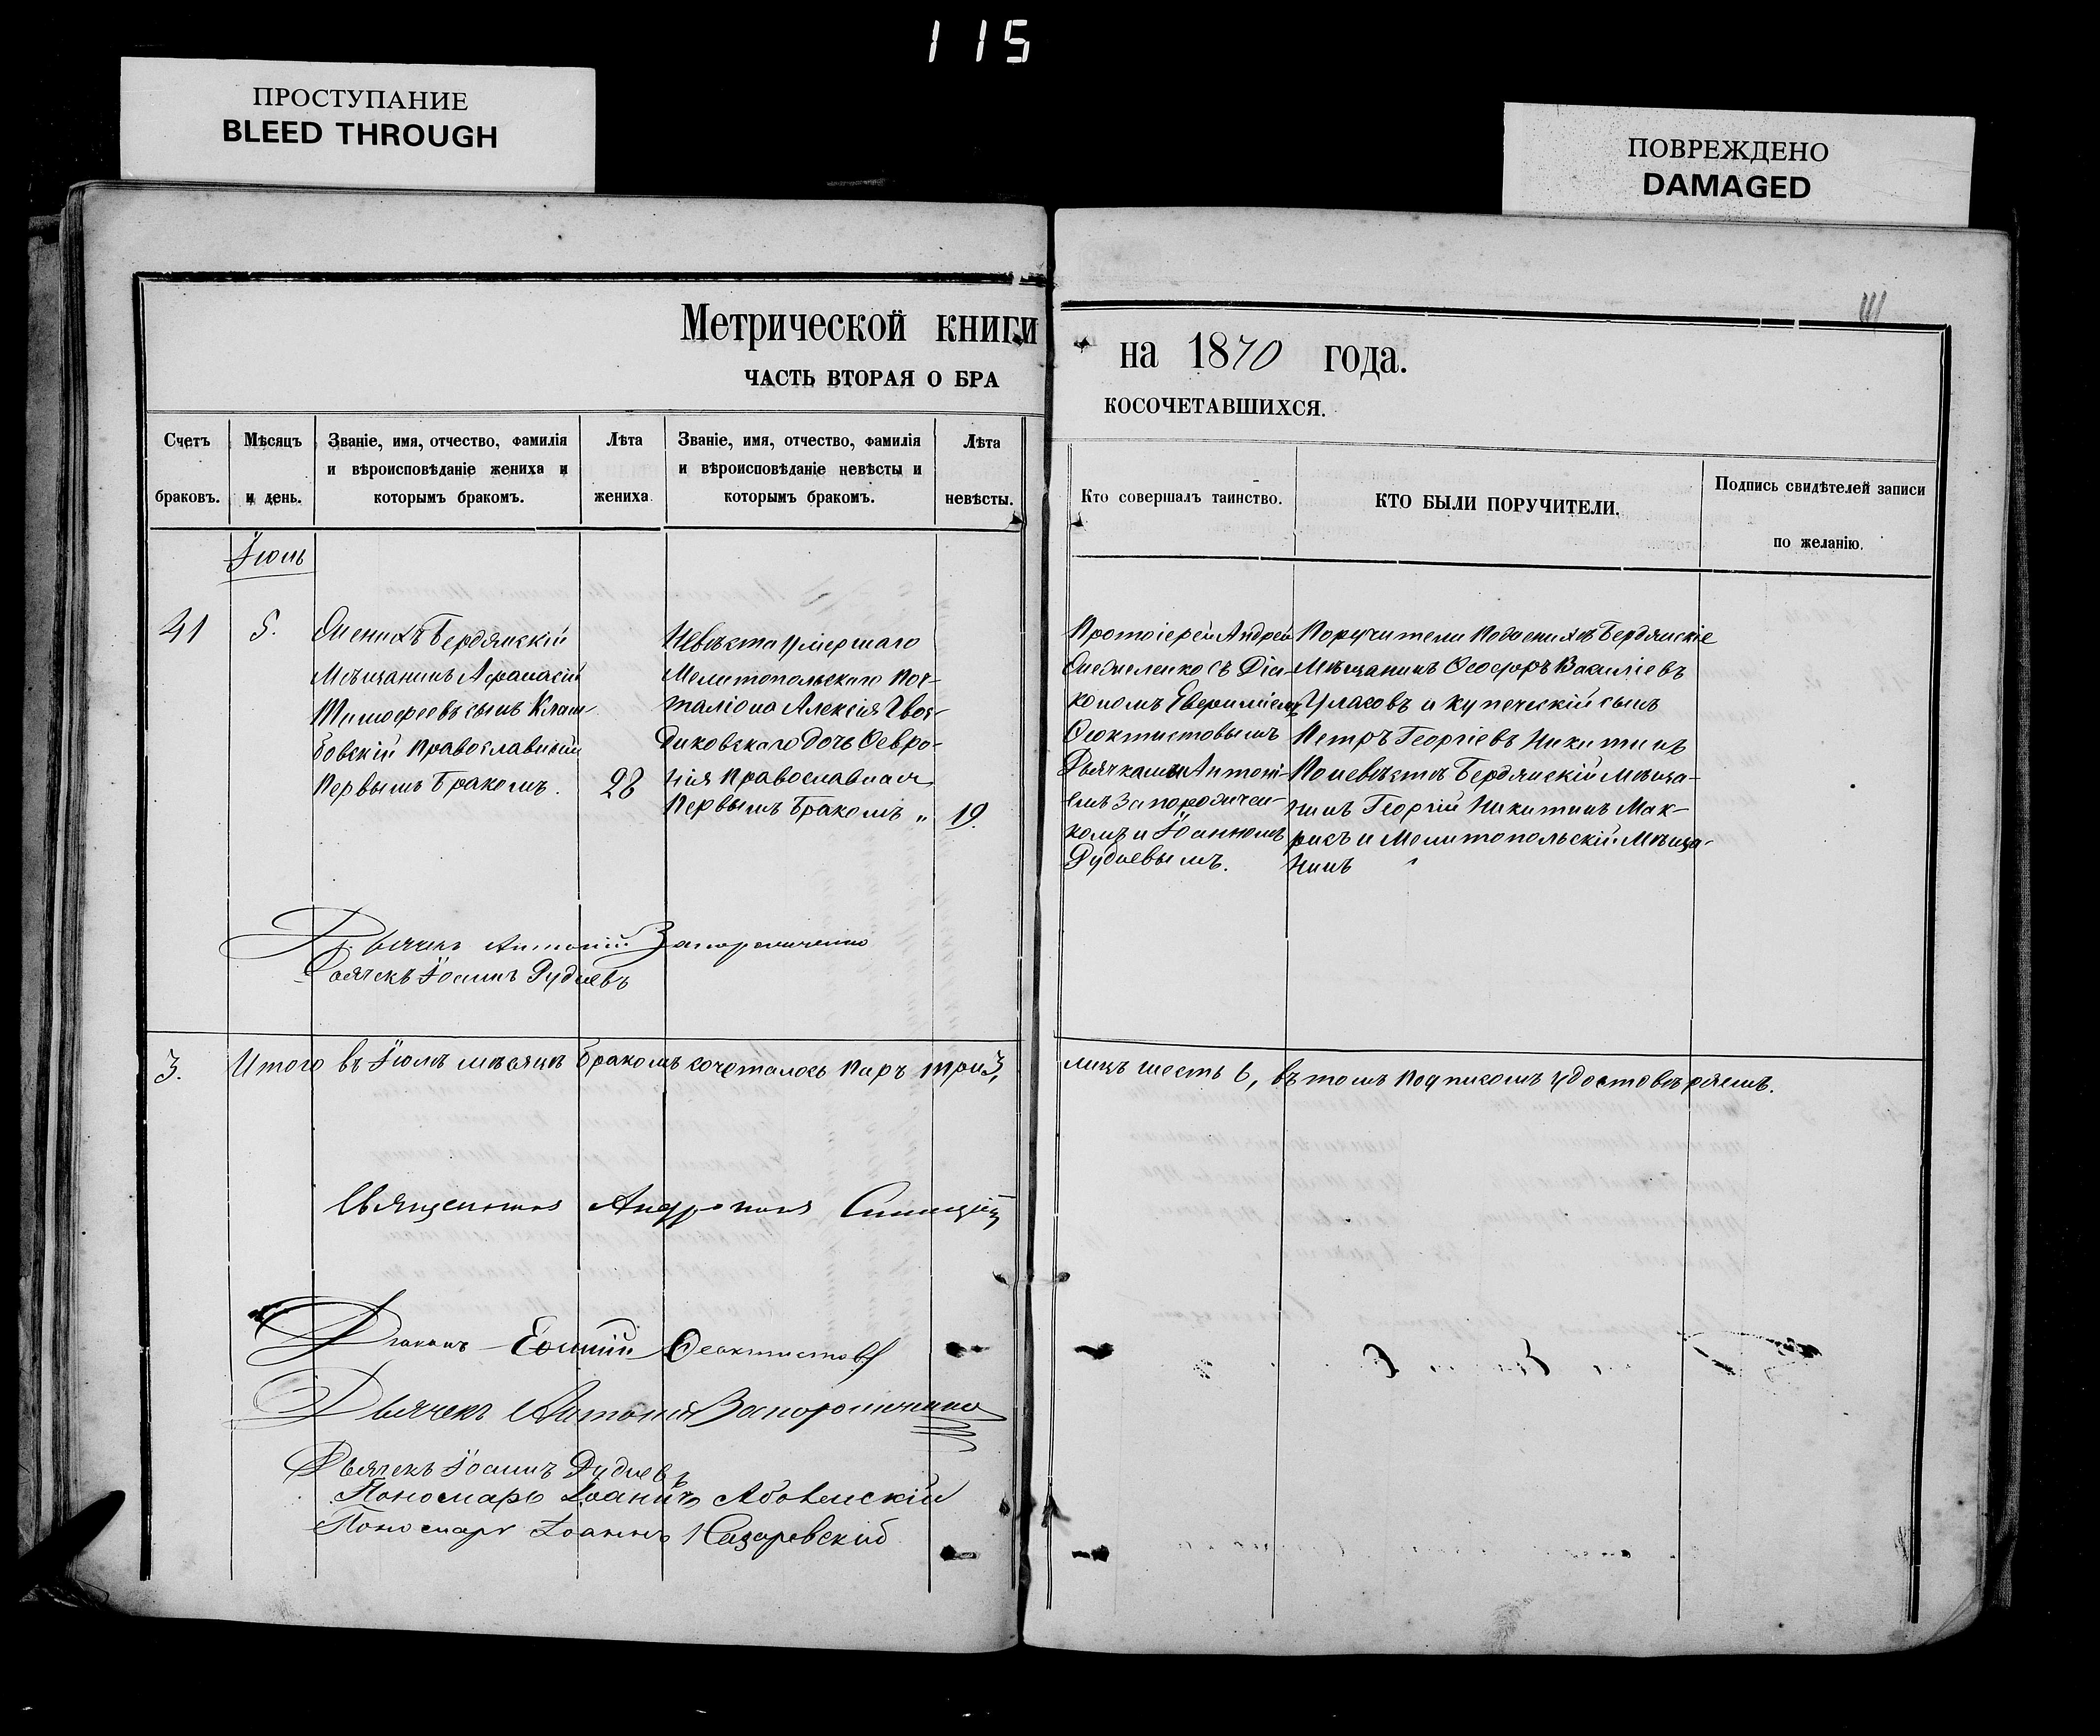 115
ПРОСТУПАНИЕ
BLEED THROUGH
ПОВРЕЖДЕНО
DAMAGED
111
Метрической книги на 1870 года.
ЧАСТЬ ВТОРАЯ О БРАКОСОЧЕТАВШИХСЯ.
Счетъ браковъ.
Мѣсяцъ и день.
Званіе, имя, отчество, фамилія
и вѣроисповѣданіе жениха и
которымъ бракомъ.
Лѣта жениха
Званіе, имя, отчество, фамилія
и вѣроисповѣданіе невѣсты и
которымъ бракомъ.
Лѣта невѣсты.
Кто совершалъ таинство.
КТО БЫЛИ ПОРУЧИТЕЛИ.
Подпись свидѣтелей записи
по желанію.
Іюль
41
5.
Женихъ Бердянскій
Мѣщанинъ Афанасій
Тимофеевъ сынъ Клам-
бовскій Православный
Первымъ Бракомъ.
28
Невѣста умершаго
Мелитопольскаго Поч-
таліона Алексія Гвоз-
диковскаго дочь Февро-
нія Православная
Первымъ бракомъ „
19.
Протоіерей Андрей
съ Діа-
кономъ Евфиміемъ
Феоктистовымъ
Дьячками Антоні-
емъ Запорожчен-
комъ и Іоанномъ
Рудневымъ.
Поручители По женихѣ Бердянскіе
Мѣщанинъ Феофоръ Василіевъ
Уласовъ и купеческій сынъ
Петръ Георгіевъ Никитинъ
По невѣстѣ Бердянскій мѣща-
нинъ Георгій Никитинъ Мак-
рисъ и Мелитопольскій Мѣща-
нинъ
Дьячекъ Антоній Запорожченко
Дьячекъ Іоаннъ Рудневъ
3.
Итого въ Іюлѣ мѣсяцѣ бракомъ сочеталось паръ три 3, лицъ шесть 6, въ томъ подписомъ удостовѣряемъ.
Священникъ Синицкій
Діаконъ Феоктистовъ
Дьячекъ Антоній Запорожченко
Дьячекъ Іоаннъ Рудневъ
Пономарь Іоаннъ
Пономарь Іоаннъ Назаревскій